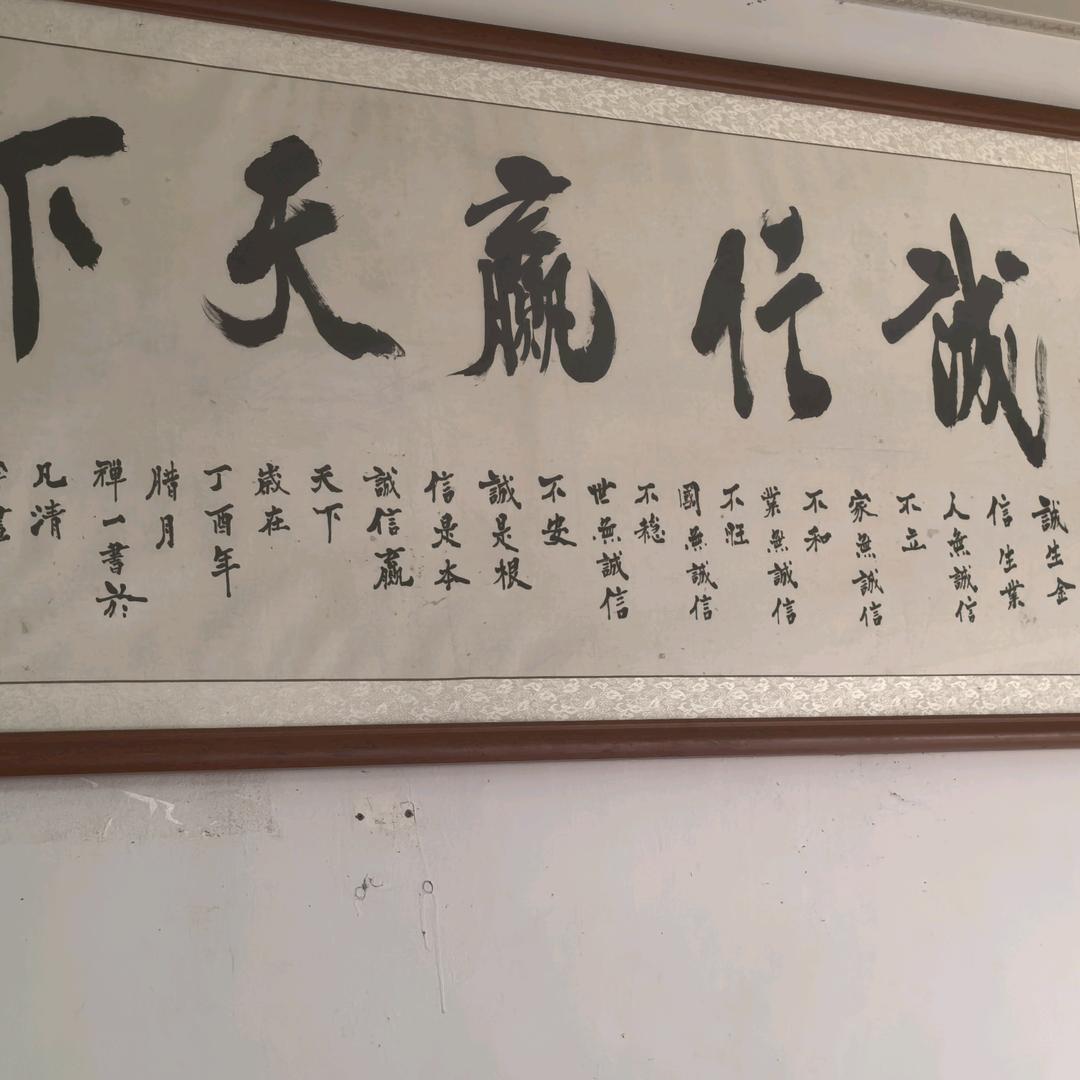 誠信贏天下
誠生金
信生業
人無誠信
不立
家無誠信
不和
業無誠信
不旺
國無誠信
不稳
世無誠信
不安
誠是根
信是本
誠信贏
天下
歲在
丁酉年
腊月
禪一書於
凡清